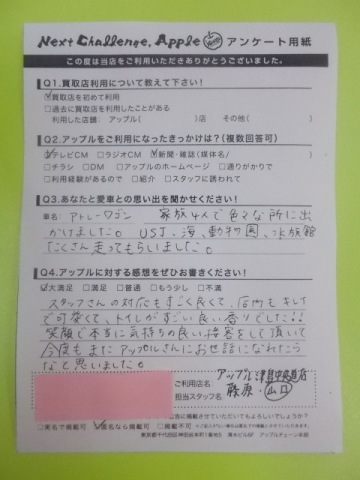 Next Challenge. Apple アンケート用紙
この度は当店をご利用いただきありがとうございました。
Q1.買取店利用について教えて下さい!
☑買取店を初めて利用
□過去に買取店を利用したことがある
利用した店舗: アップル( )店 その他( )
Q2.アップルをご利用になったきっかけは?(複数回答可)
☑テレビCM □ラジオCM ☑新聞・雑誌(媒体名/ )
□チラシ □DM □アップルのホームページ □通りがかりで
□利用経験があるので □紹介 □スタッフに誘われて
Q3.あなたと愛車との思い出を聞かせください!
車名: アトレーワゴン 家族4人で色々な所に出
かけました。USJ、海、動物園、水族館
たくさん走ってもらいました。
Q4.アップルに対する感想をぜひお書きください!
☑大満足 □満足 □普通 □もう少し □不満
スタッフさんの対応もすごく良くて、店内もキレイ
で可愛くて、トイレがすごい良い香りでした!!
笑顔で本当に気持ちの良い接客をして頂いて
今度もまたアップルさんにお世話になれたら
なと思いました。
ご利用店名 アップル津島中央道店
担当スタッフ名 藤原・山口
当に掲載させていただいてもよろしいでしょうか?
□実名で掲載可 ☑匿名なら掲載可 □掲載不可
東京都千代田区神田佐末町1番地5 清水ビル6F アップルチェーン本部